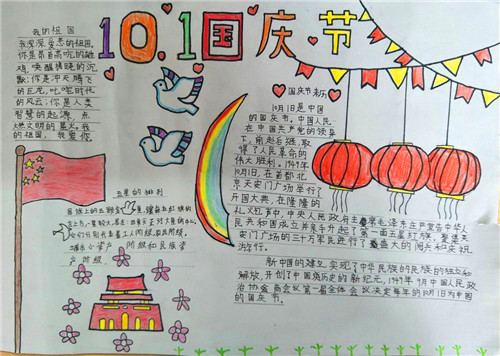 10.1国庆节
我的祖国
我深深爱恋的祖国。
你是昂首高吭的雄
鸡,唤醒拂晓的沉
默;你是冲天腾飞
的巨龙,叱咤时代
的风云;你是人类
智慧的起源,点
燃文明的星火。我
的祖国,我爱你
国庆节来历
10月1日是中国
的国庆节。中国人民
在中国共产党的领导
下,前赴后继,取
得了人民革命的
伟大胜利。1949年
10月1日,在首都北
京天安门广场举行了
开国大典,在隆隆的
礼炮声中,中央人民政府主席毛泽东庄严宣告中华人
民共和国成立并亲手升起了第一面五星红旗。聚集天
安门广场的三十万军民进行了盛大的阅兵和庆祝
游行。
新中国的建立,实现了中华民族的民族的独立和
解放,开创了中国历史的新纪元,1949年9月中国人民政
治协会商会议第一届全体会议决定每年的10月1日为中国
的国庆节。
五星的排列
旗帜上的五颗
产阶级和民族资
产阶级